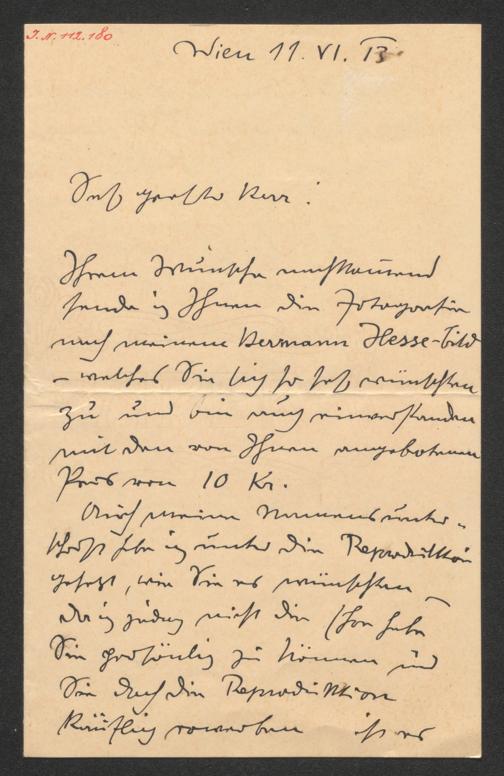 J.N. 112.180
Wien 11. VI. 13
Sehr geehrter Herr!
Ihrem Wunsche nachkommend
sende ich Ihnen die Fotografie
nach meinem Hermann Hesse-bild
– welches Sie sich so sehr wünschten
zu und bin auch einverstanden
mit den von Ihnen angebotenen
Preis von 10 Kr.
Auch meine Namensunter-
schrift habe ich unter die Reproduktion
gesetzt, wie Sie es wünschten –
da ich jedoch nicht die Ehre habe
Sie persönlich zu kennen und
Sie doch die Reproduktion
käuflich erwerben ist es